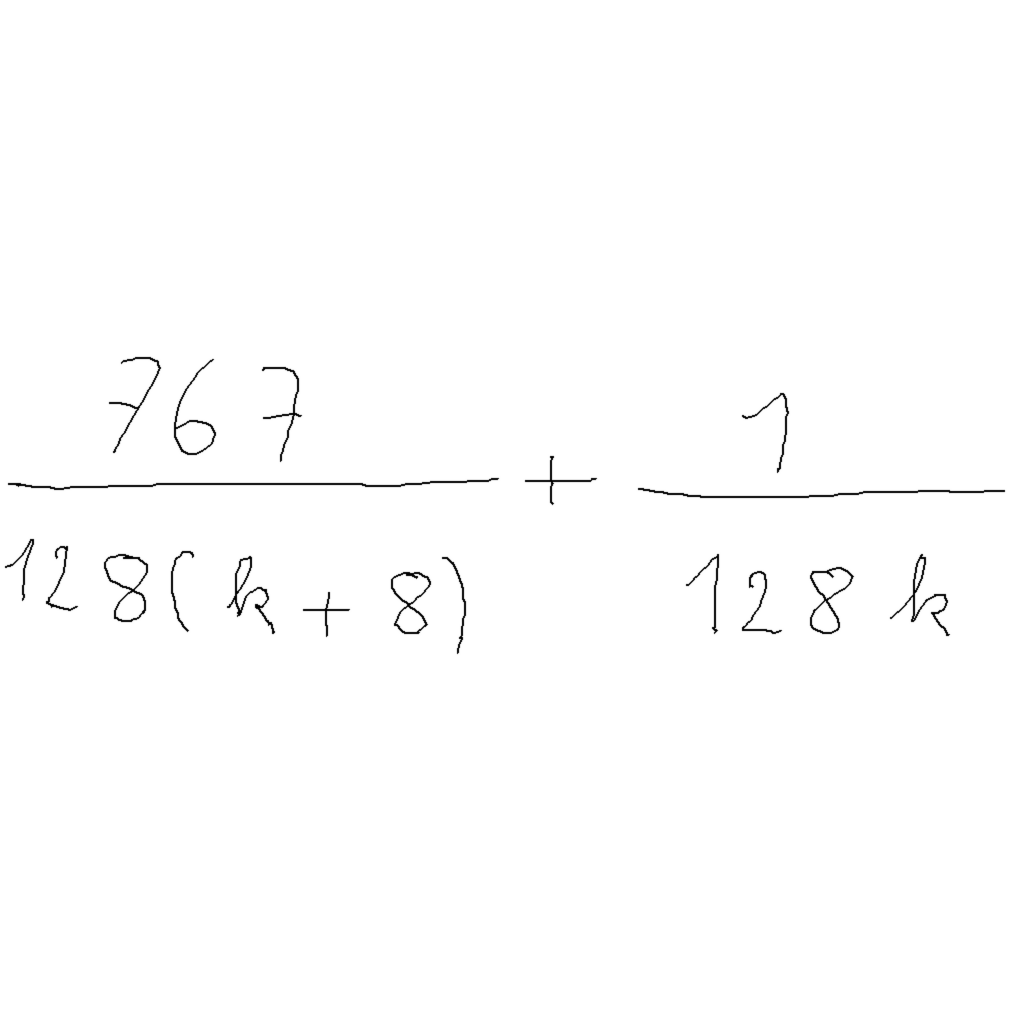 \frac{767}{128(k+8)} + \frac{1}{128k}